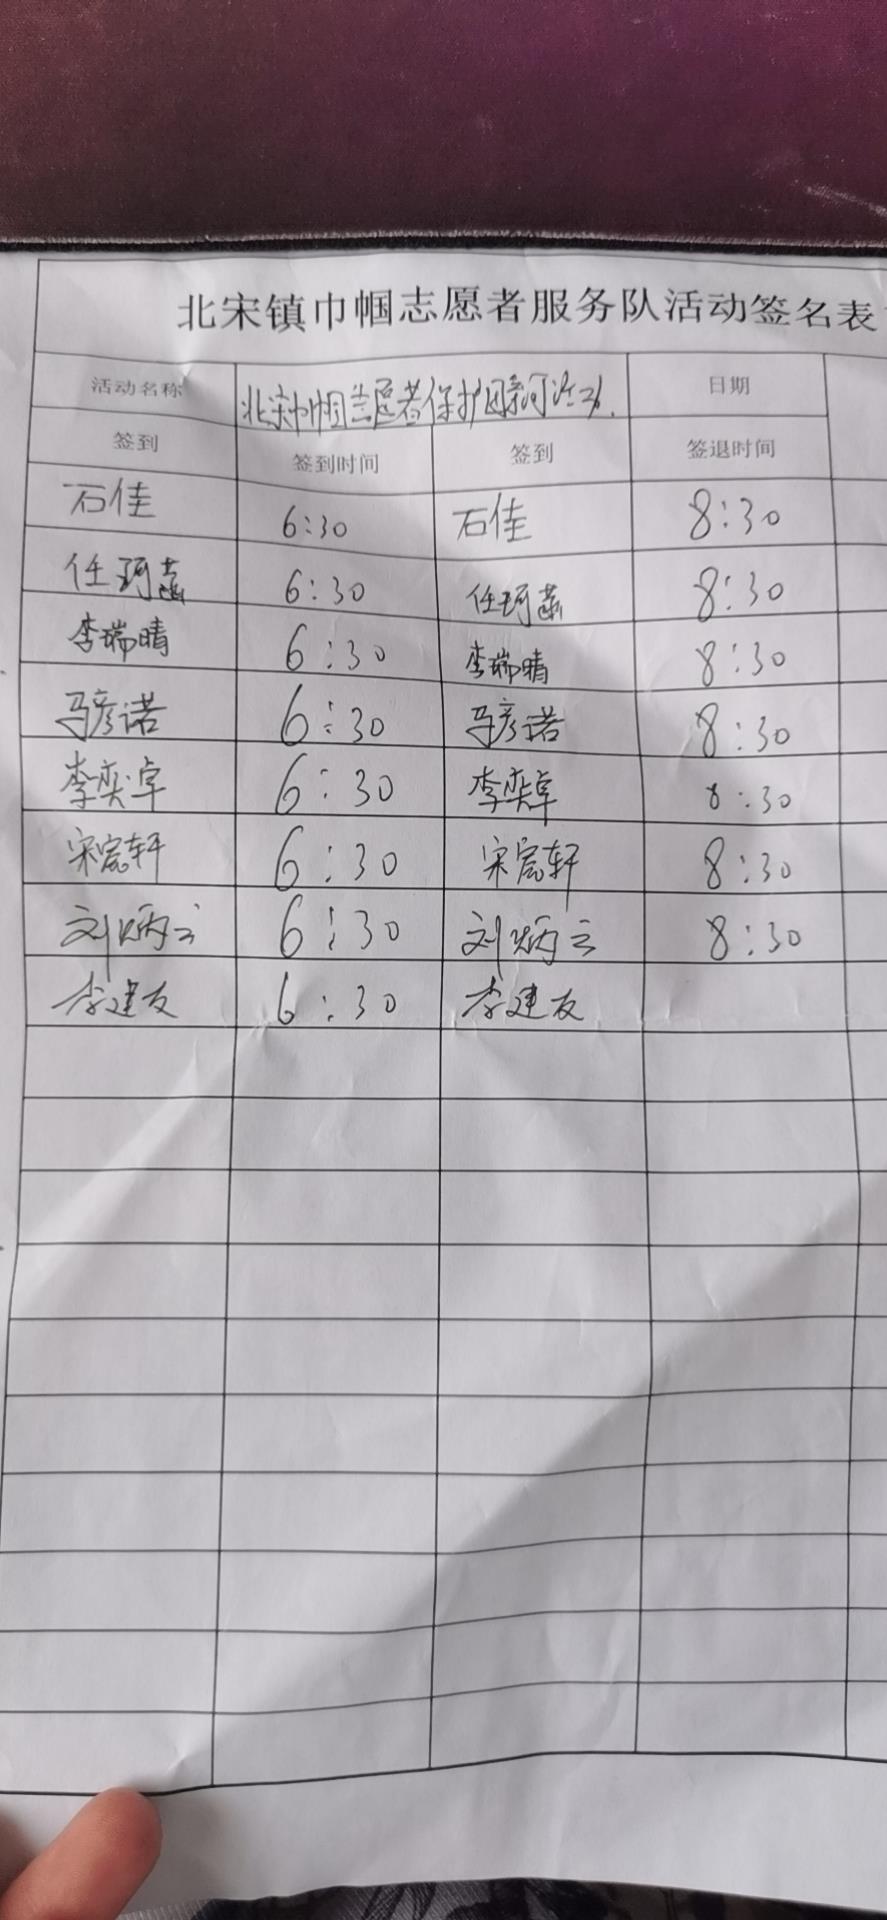 北宋镇巾帼志愿者服务队活动签名表
活动名称 北宋巾帼志愿者保护母亲河活动. 日期
签到 签到时间 签到 签退时间
石佳 6:30 石佳 8:30
任珂菡 6:30 任珂菡 8:30
李瑞晴 6:30 李瑞晴 8:30
马彦诺 6:30 马彦诺 8:30
李奕卓 6:30 李奕卓 8:30
宋宸轩 6:30 宋宸轩 8:30
刘炳云 6:30 刘炳云 8:30
李建友 6:30 李建友